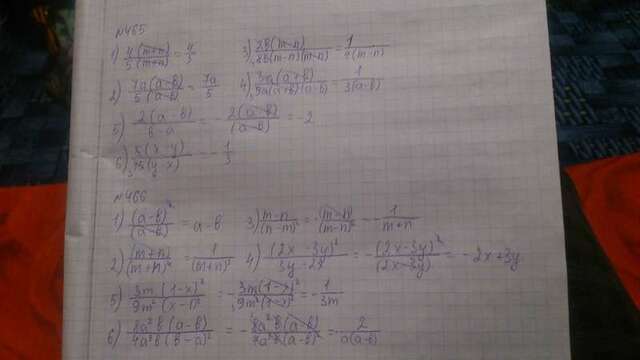 №465
1) 4(m+n)/5(m+n) = 4/5 3) 2b(m-n)/8b(m-n)(m-n) = 1/4(m-n)
2) 7a(a-b)/5(a-b) = 7a/5 4) 3a(a+b)/9a(a+b)(a-b) = 1/3(a-b)
5) 2(a-b)/b-a = -2(a-b)/(a-b) = -2
6) 5(x-y)/15(y-x) = -1/3
№466
1) (a-b)²/(a-b) = a-b 3) m-n/(n-m)² = (m-n)/(m-n)² = 1/m+n
2) (m+n)/(m+n)³ = 1/(m+n)² 4) (2x-3y)²/3y-2x = -(2x-3y)²/(2x-3y) = -2x+3y
5) 3m(1-x)²/9m²(x-1)² = -3m(1-x)²/9m²(1-x)² = -1/3m
6) 8a²b(a-b)/4a²b(b-a)² = -8a²b(a-b)/4a²b(a-b)² = 2/a(a-b)